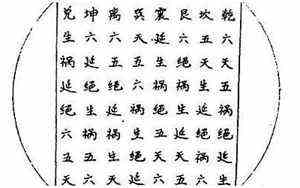 乾六天五祸绝延生
坎五天生延绝祸六
艮六绝祸生延天五
震延生祸绝五天六
巽天五六祸生绝延
离六五绝延祸生天
坤六延绝生祸五六
兑生祸延绝六五天